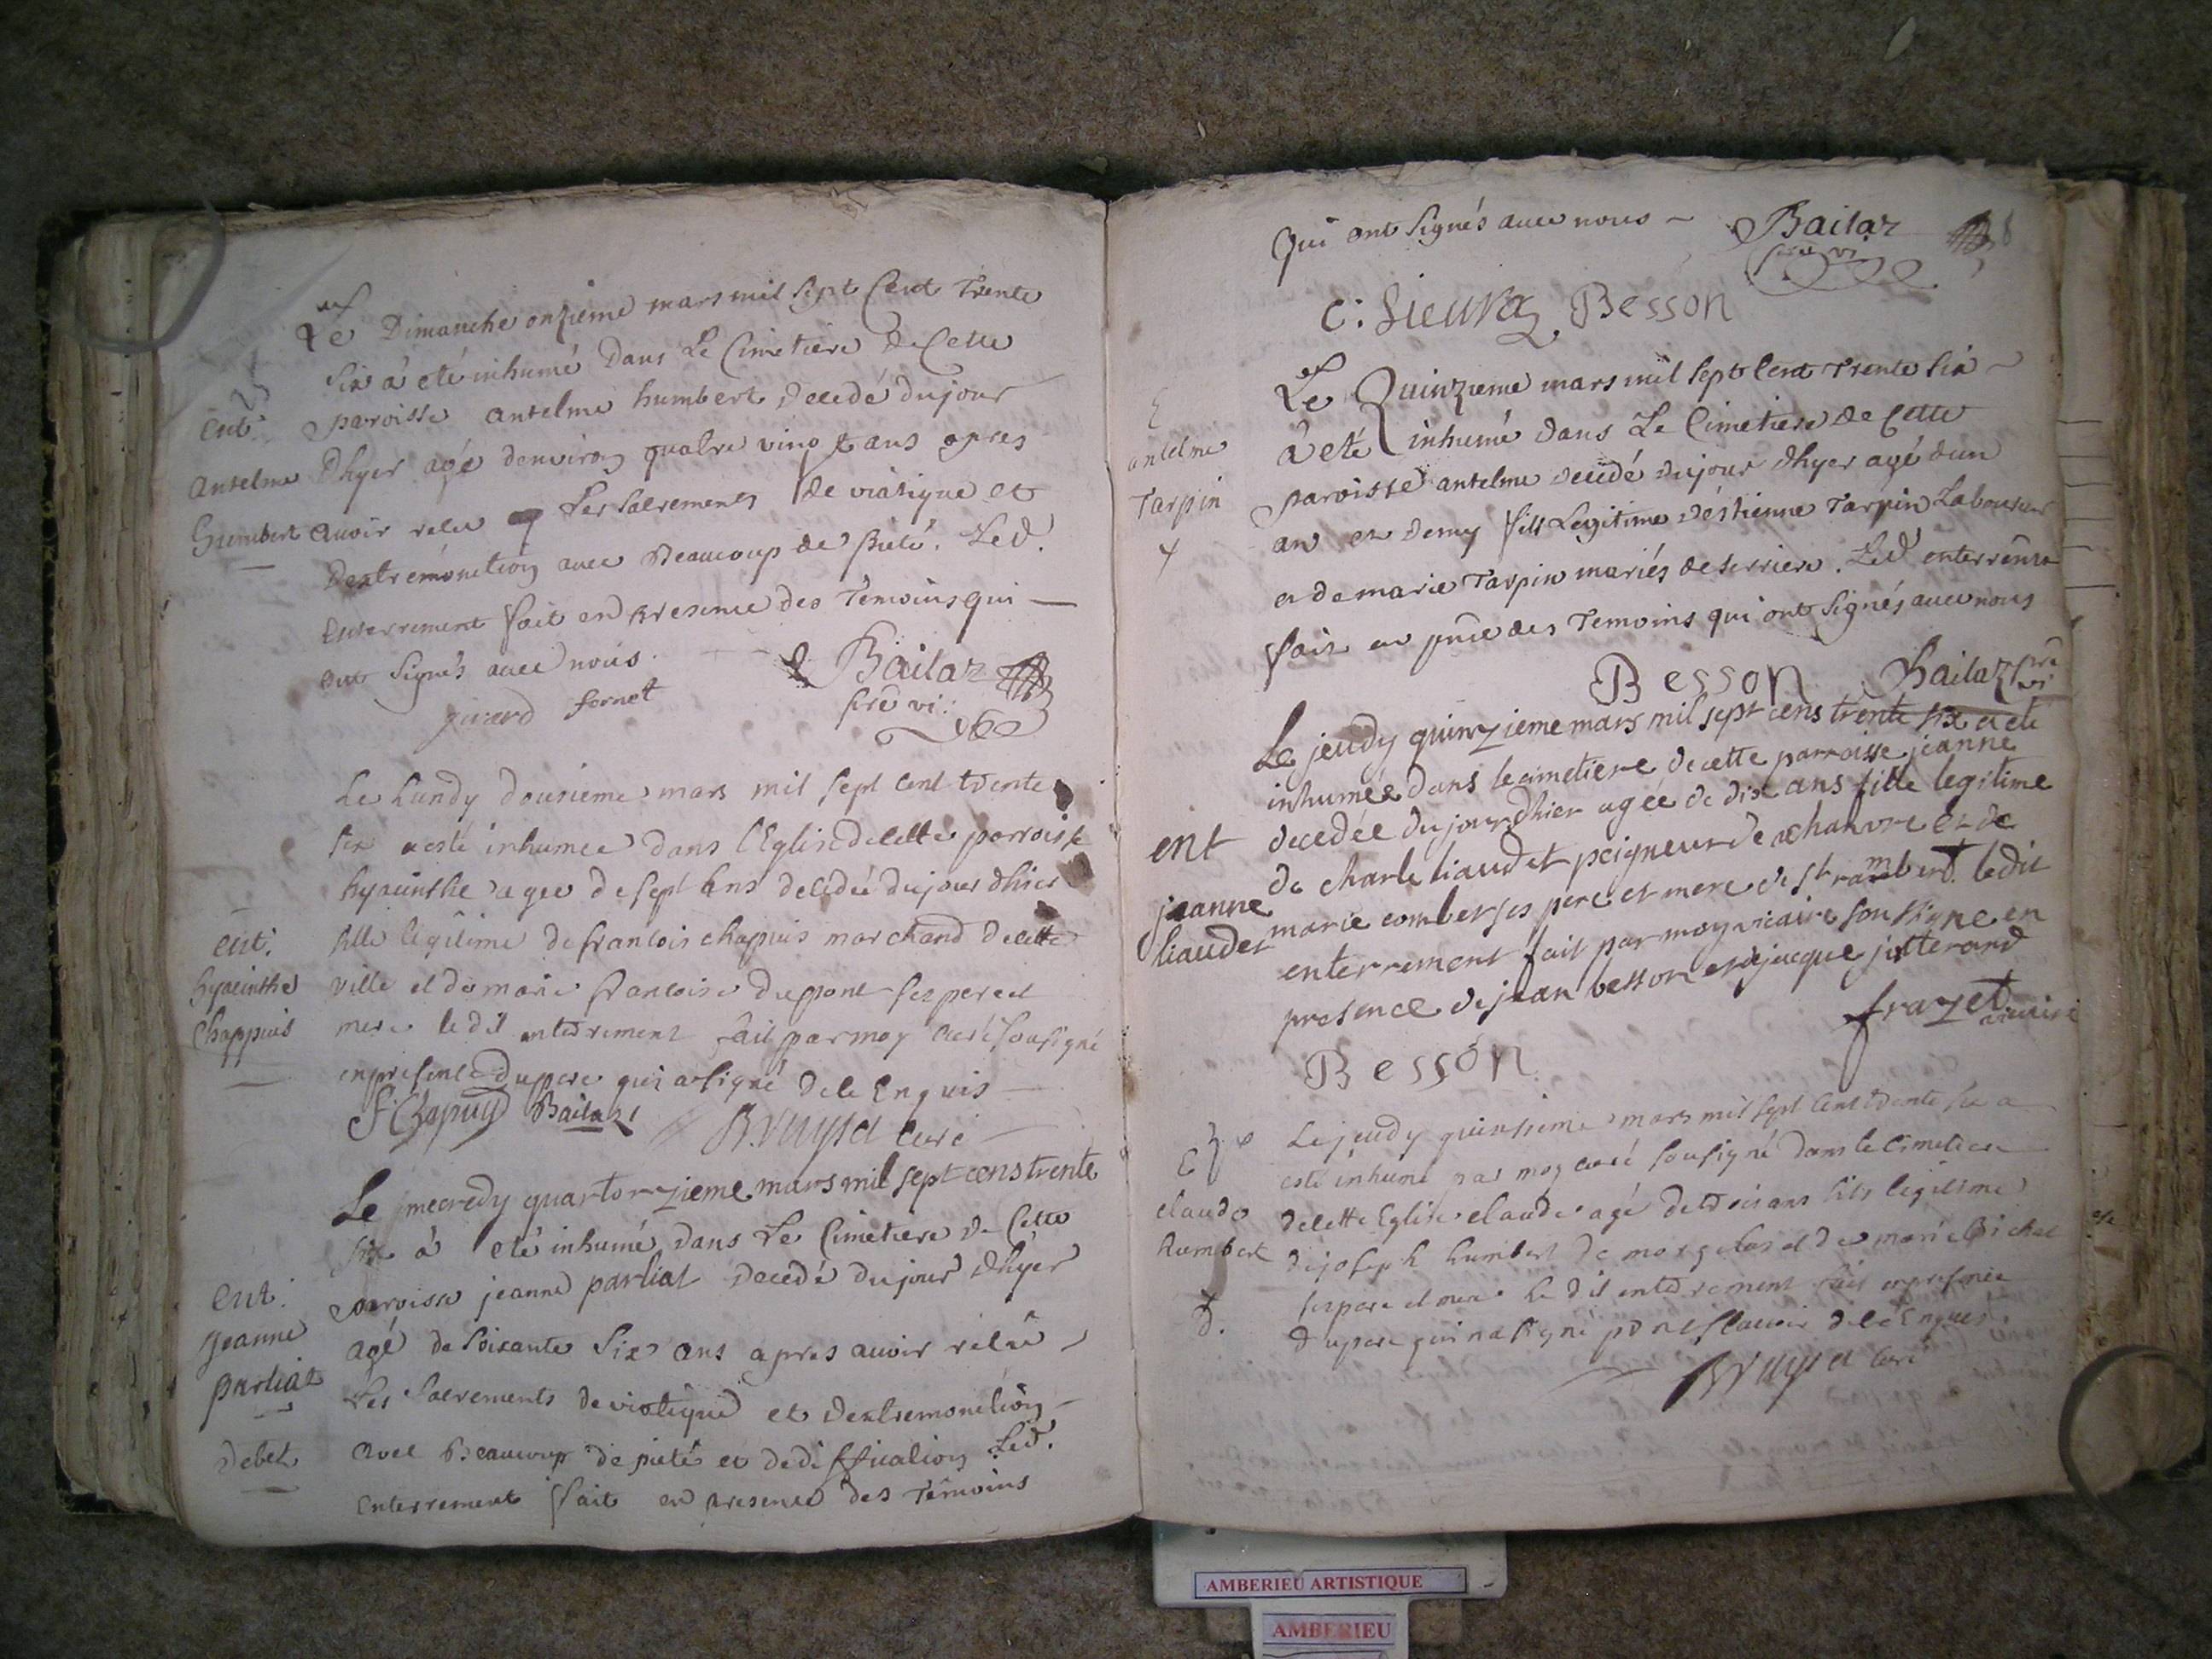 Le Dimanche onzieme mars mil sept Cent Trente
Six à eté inhumé Dans Le Cimetiere De Cette
ent. paroisse antelme humbert decedé du jour
Antelme Dhyer agé denviron quatre vingt ans apres
humbert avoir relcu Les Sacrements de viatique et
Dextrémonction avec Beaucoup de Pieté. Led.
Enterrement fait en presence des Témoins qui
ont Signés avec nous.
Bailaz
pre vi.
girard fornet
Le Lundy dousieme mars mil sept cent trente
six a esté inhumee dans l'Eglise de cette parroisse
hyacinthe agee de sept ans decedée du jour dhier
ent. fille legitime de francois chappuis marchand de cette
hyacinthe ville et de marie francoise dupont ses pere et
Chappuis mere le dit enterrement fait par moy curé sousigné
en presence du pere qui a signé de ce Enquis
F Chapuy Bailaz
Bruyset curé
Le mecredy quartorzieme mars mil sept cens trente
six à eté inhumé Dans Le Cimetiere De Cette
ent. paroisse jeanne parliat decedé du jour Dhyer
jeanne agé de soixante Six ans apres avoir relcü
parliat Les Sacrements de viatique et Dextremonction
debet avec Beaucoup de pieté et dediffication Led.
Enterrement fait en presence des Témoins
Qui ont Signés avec nous
Bailaz
pre vi
C: Sieura Besson
Le Quinzieme mars mil sept Cent Trente Six
à eté inhumé dans Le Cimetiere de Cette
antelme paroisse antelme decedé du jour Dhyer agé dun
Tarpin an et demy fils Legitime déstienne Tarpin Laboureur
et de marie Tarpin mariés de serriere. Led enterremt
fait en pnce des Temoins qui ont Signés avec nous
Besson Bailaz pre vi
Le jeudy quinzieme mars mil sept cens trente six a eté
inhumée dans le cimetiere de cette parroisse jeanne
ent decedée du jour Dhier agée de dix ans fille legitime
de charle liaudet peigneur de chanvre et de
jeanne marie combet ses pere et mere de st rambert ledit
liaudet enterrement fait par moy vicaire sousigne en
presence de jean besson et de jacque jotterand
frazet vicaire
Besson
Le jeudy quinsieme mars mil sept cent trente six a
esté inhumé par moy curé sousigné dans le cimetiere
claude de cette Eglise claude agé de trois ans fils legitime
humbert de joseph humbert de morgelas et de marie Bichat
ses pere et mere le dit enterrement fait en presence
d. du pere qui na signé pour ne sçavoir de ce Enquis
Bruyset curé
AMBERIEU ARTISTIQUE
AMBERIEU